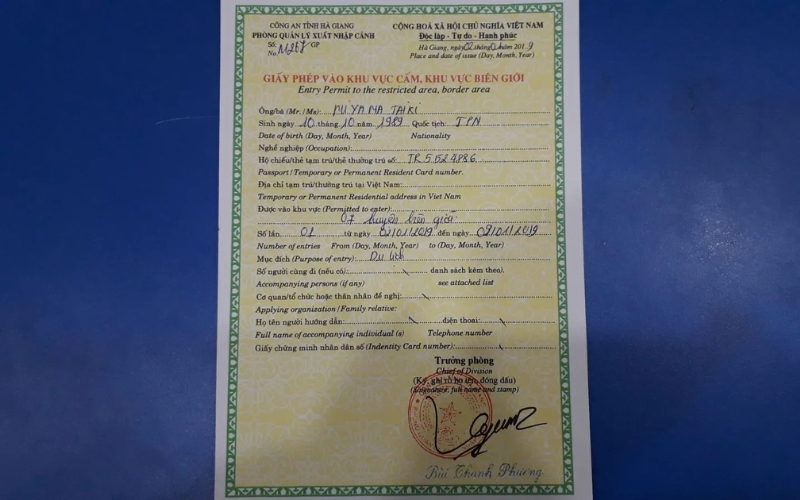 CÔNG AN TỈNH HÀ GIANG
PHÒNG QUẢN LÝ XUẤT NHẬP CẢNH
Số GP
No.
CỘNG HOÀ XÃ HỘI CHỦ NGHĨA VIỆT NAM
Độc lập - Tự do - Hạnh phúc
Hà Giang, ngày 02 tháng năm 2019
Place and date of issue (Day, Month, Year)
GIẤY PHÉP VÀO KHU VỰC CẤM, KHU VỰC BIÊN GIỚI
Entry Permit to the restricted area, border area
Ông/bà (Mr./Ms): TAIKI
Sinh ngày 10 tháng 10 năm 1989 Quốc tịch: JPN
Date of birth (Day, Month, Year) Nationality
Nghề nghiệp (Occupation):
Hộ chiếu/thẻ tạm trú/thẻ thường trú số: TR5524886
Passport/Temporary or Permanent Resident Card number.
Địa chỉ tạm trú/thường trú tại Việt Nam:
Temporary or Permanent Residential address in Viet Nam
Được vào khu vực (Permitted to enter):
07 huyện biên giới
Số lần 01 từ ngày 02/01/2019 đến ngày 09/01/2019
Number of entries From (Day, Month, Year) to (Day, Month, Year)
Mục đích (Purpose of entry): Du lịch
Số người cùng đi (nếu có): danh sách kèm theo).
Accompanying persons (if any) see attached list
Cơ quan/tổ chức hoặc thân nhân đề nghị:
Applying organization/Family relative:
Họ tên người hướng dẫn: điện thoại:
Full name of accompanying individual (s) Telephone number
Giấy chứng minh nhân dân số (Indentity Card number):
Trưởng phòng
Chief of Division
(Ký, ghi rõ họ tên, đóng dấu)
(Signature, full name and stamp)
Bùi Thanh Phương